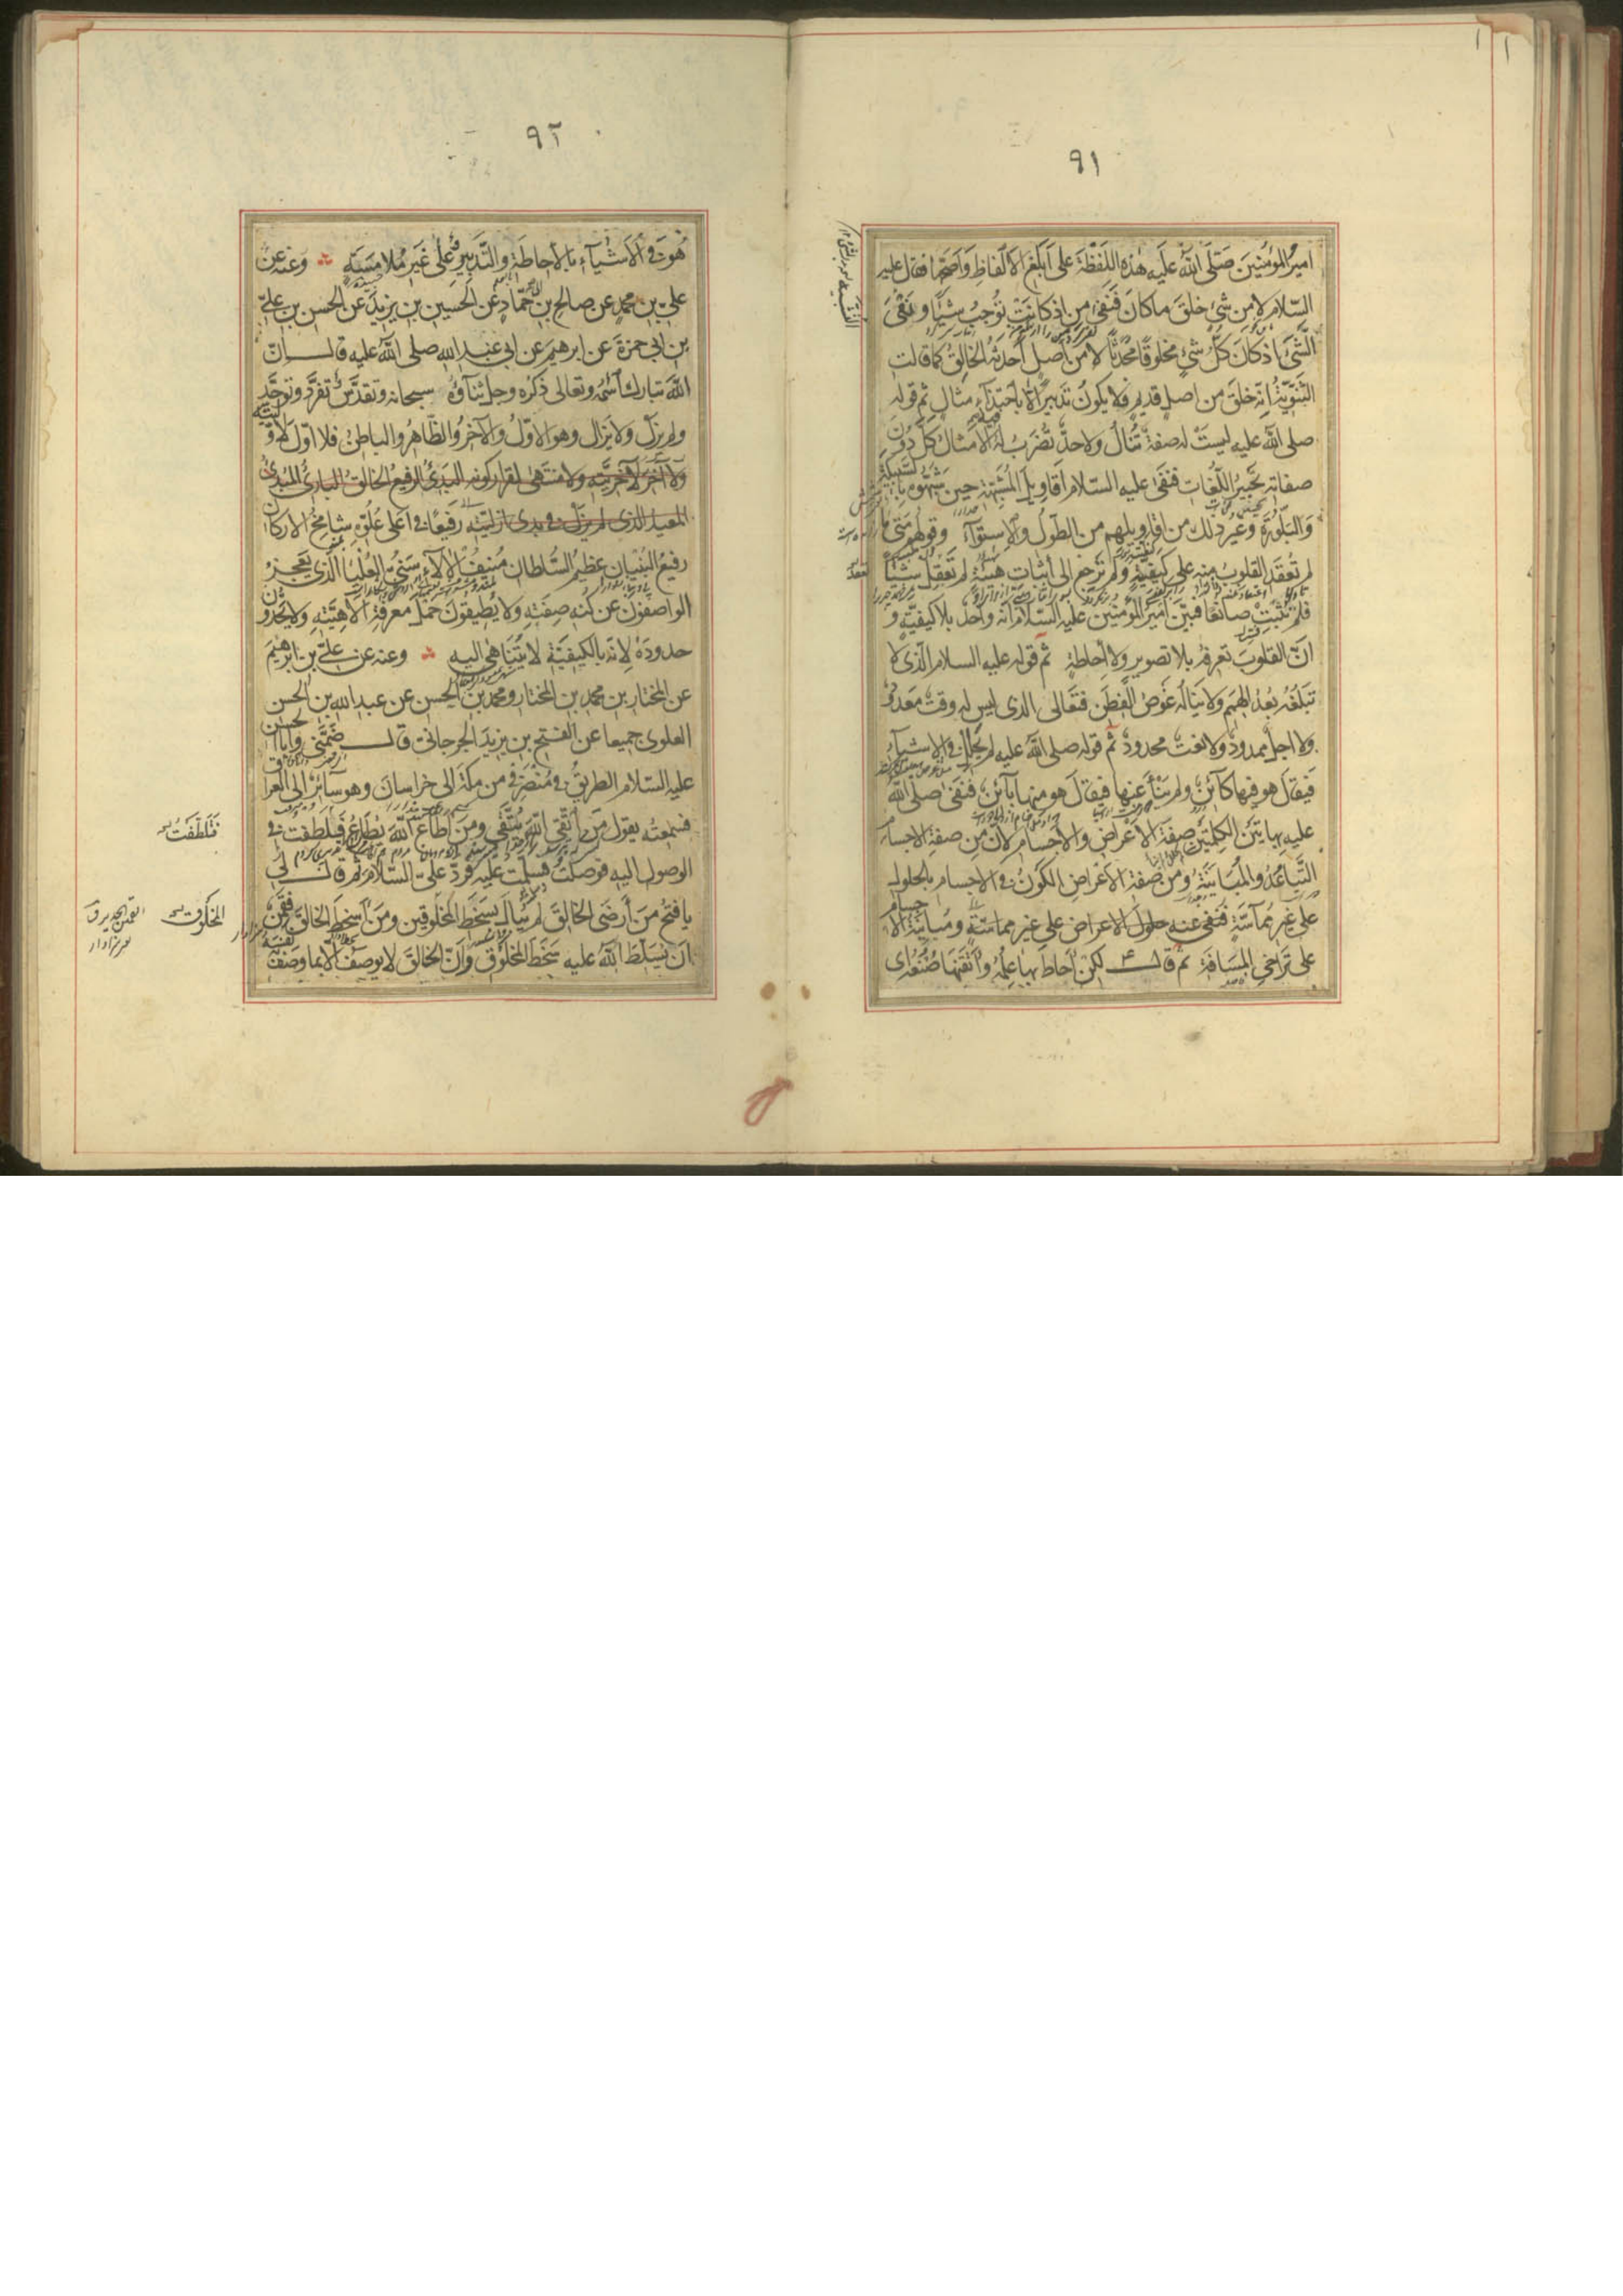 ٩١
امير المؤمنين صلى الله عليه هذه اللفظة على ابلغ الالفاظ واصحها فقال عليه
السلام لا من شئ خلق ما كان فنفى من اذ كانت توجب شيئا ونفى
الشئ اذ كان كل شئ مخلوقا محدثا لا من اصل احدثه الخالق كما قالت
الثنوية انه خلق من اصل قديم فلا يكون تدبير الا باحتذاء مثال ثم قوله
صلى الله عليه ليست له صفة تنال ولا حد تضرب له الامثال كل دون
صفاته تحبير اللغات فنفى عليه السلام اقاويل المشبهة حين شبهوه بالسبيكة
والبلورة وغير ذلك من اقاويلهم من الطول والاستواء وقولهم متى ما
لم تعقد القلوب منه على كيفية ولم ترجع الى اثبات هيئة لم تعقل شيئا
فلم تثبت صانعا فبين امير المؤمنين عليه السلام انه واحد بلا كيفية و
ان القلوب تعرفه بلا تصوير ولا احاطة ثم قوله عليه السلام الذى لا
تبلغه بعد الهمم ولا يناله غوص الفطن فتعالى الذى ليس له وقت معدود
ولا اجل ممدود ولا نعت محدود ثم قوله صلى الله عليه لم يحلل فى الاشياء
فيقال هو فيها كائن ولم ينأ عنها فيقال هو منها بائن فنفى صلى الله
عليه بهاتين الكلمتين صفة الاعراض والاجسام لان من صفة الاجسام
التباعد والمباينة ومن صفة الاعراض الكون فى الاجسام بالحلول
على غير مماسة فنفى عنه حلول الاعراض على غير مماسة ومباينة الاجسام
على تراخى المسافة ثم قال ع لكن احاط بها علمه واتقنها صنعه اى
٩٢
هو فى الاشياء بالاحاطة والتدبير وعلى غير ملامسة وعنه عن
على بن محمد عن صالح بن حماد عن الحسين بن يزيد عن الحسن بن على
بن ابى حمزة عن ابرهيم عن ابى عبد الله صلى الله عليه قال ان
الله تبارك اسمه وتعالى ذكره وجل ثناؤه سبحانه وتقدس تفرد وتوحد
ولم يزل ولا يزال وهو الاول والآخر والظاهر والباطن فلا اول لاوليته
ولا آخر لآخريته ولا منتهى لقرار كونه البدئ الرفيع الخالق البارئ المبدئ
المعيد الذى لم يزل فى بدى ازليته رفيعا فى اعلى علوه شامخ الاركان
رفيع البنيان عظيم السلطان منيف الآلاء سنى العليا الذى يعجز
الواصفون عن كنه صفته ولا يطيقون حمل معرفة الاهيته ولا يحدون
حدوده لانه بالكيفية لا يتناهى اليه وعنه عن على بن ابرهيم
عن المختار بن محمد بن المختار ومحمد بن الحسن عن عبد الله بن الحسن
العلوى جميعا عن الفتح بن يزيد الجرجانى قال ضمنى وابا الحسن
عليه السلام الطريق فى منصرفى من مكة الى خراسان وهو سائر الى العراق
فسمعته يقول من اتقى الله يتقى ومن اطاع الله يطاع فلطفت فى
الوصول اليه فوصلت فسلمت عليه فرد على السلام ثم قال لى
يا فتح من ارضى الخالق لم يبال بسخط المخلوقين ومن اسخط الخالق فقمن
ان يسلط الله عليه سخط المخلوق وان الخالق لا يوصف الا بما وصف به نفسه
فتلطفت
المخلوق